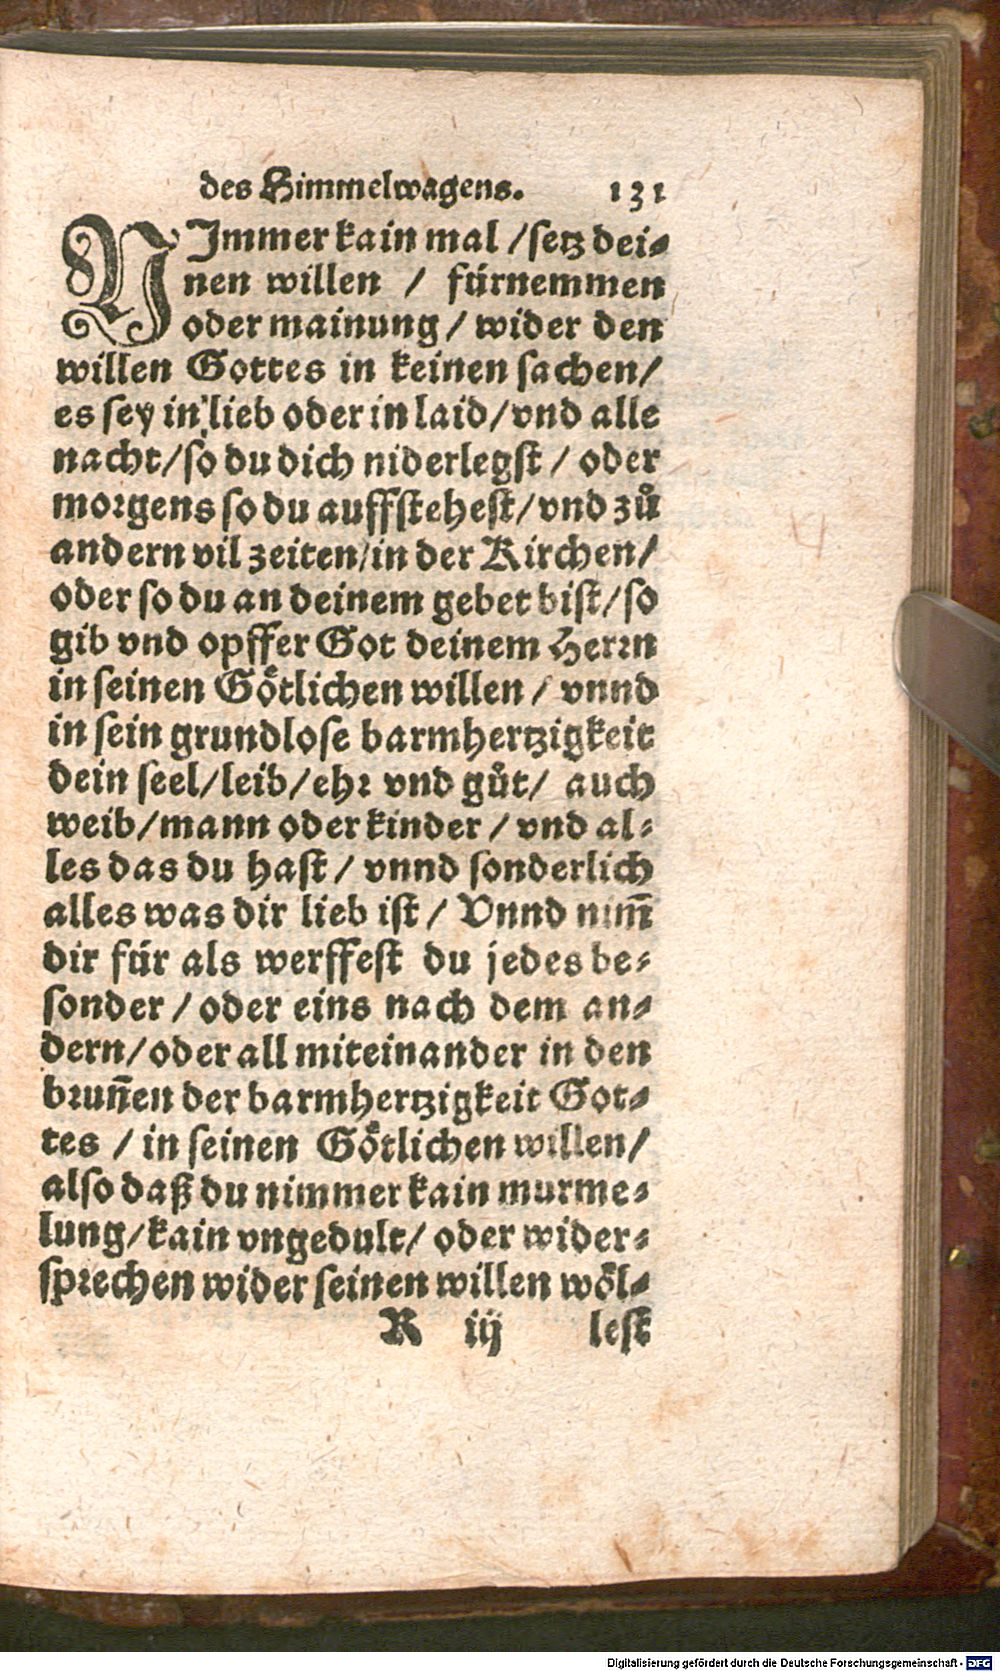 des Himmelwagens. 131
NJmmer kain mal / setz dei⸗
nen willen / fürnemmen
oder mainung / wider den
willen Gottes in keinen sachen /
es sey in lieb oder in laid / vnd alle
nacht / so du dich niderlegst / oder
morgens so du auffstehest / vnd zů
andern vil zeiten / in der Kirchen /
oder so du an deinem gebet bist / so
gib vnd opffer Got deinem Herrn
in seinen Goͤtlichen willen / vnnd
in sein grundlose barmhertzigkeit
dein seel / leib / ehr vnd gůt / auch
weib / mann oder kinder / vnd al⸗
les das du hast / vnnd sonderlich
alles was dir lieb ist / Vnnd nim̄
dir für als werffest du jedes be⸗
sonder / oder eins nach dem an⸗
dern / oder all miteinander in den
brun̄en der barmhertzigkeit Got⸗
tes / in seinen Goͤtlichen willen /
also daß du nimmer kain murme⸗
lung / kain vngedult / oder wider⸗
sprechen wider seinen willen woͤl⸗
R iij lest
Digitalisierung gefördert durch die Deutsche Forschungsgemeinschaft - DFG